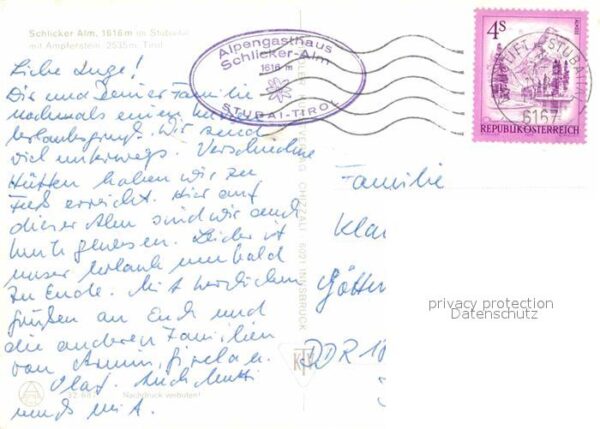 Schlicker Alm, 1616 m im Stubaital
mit Ampferstein, 2535 m, Tirol
Alpengasthaus
Schlicker-Alm
1616 m
STUBAI-TIROL
4S
REPUBLIK ÖSTERREICH
6167
Liebe Inge!
Dir und Deiner Familie
nochmals einen
Urlaubsgruß. Wir sind
viel unterwegs. Verschiedene
Hütten haben wir zu
Fuß erreicht. Hier auf
dieser Alm sind wir auch
heute gewesen. Leider ist
unser Urlaub nun bald
zu Ende. Mit herzlichen
Grüßen an Euch und
die anderen Familien
von Armin, Gisela u.
Olaf. Auch Mutti
muß mit.
Familie
Kla
Götter
DDR 10
VERLAG CHIZZALI · 6021 INNSBRUCK
privacy protection
Datenschutz
Nachdruck verboten!